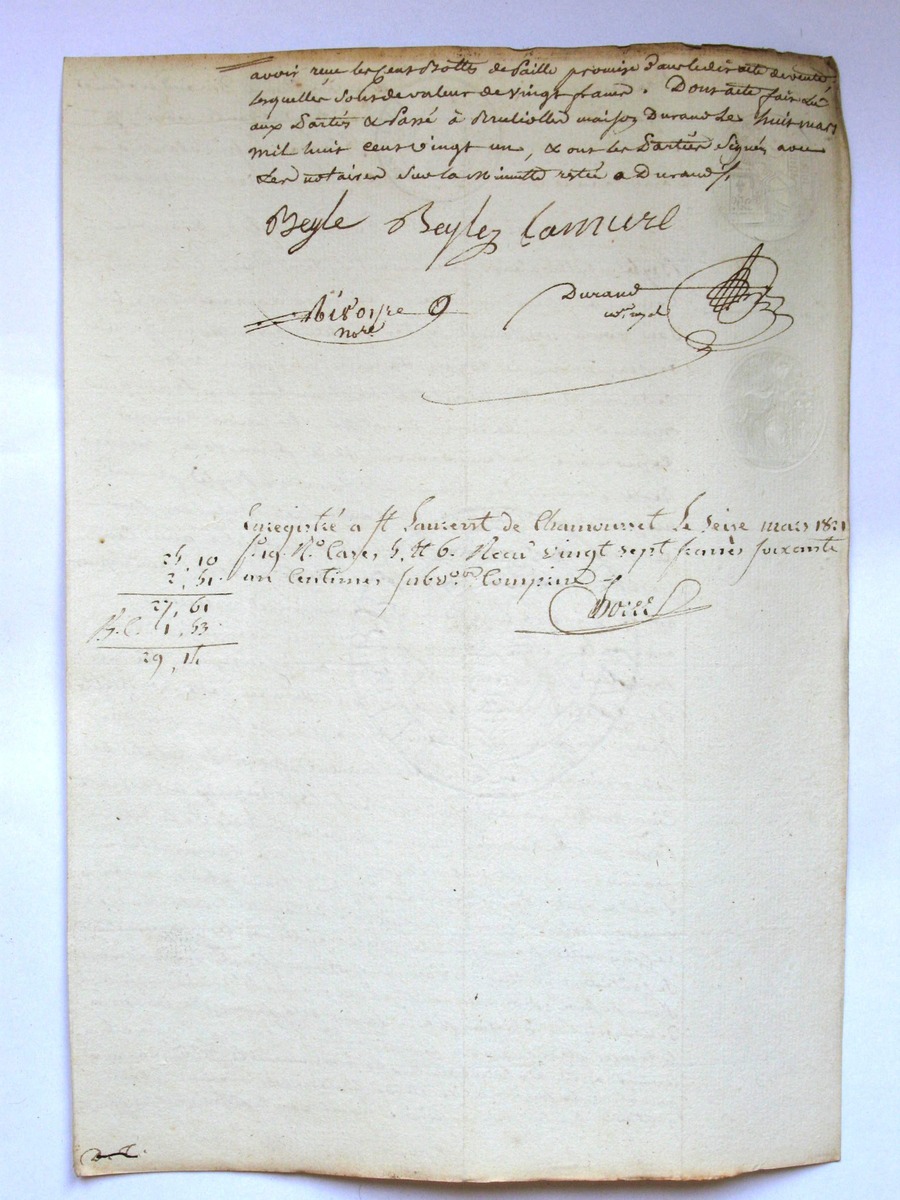 avoir reçu les cent Bottes de Paille promise dans ledit acte de vente
lesquelles sont de valeur de vingt francs. Dont acte fait Lu
aux Parties & Passé à Brullioles maison Durand Le huit mars
mil huit cent vingt un, & ont les Parties Signés avec
Les notaires Sur la Minutte restée a Durand
Beyle Beyle Lamure
not.re
Durand
Enregistré a St Laurent de Chamousset Le Seise mars 1821
f.o 19 R.o Cases 5 et 6. Reçu vingt sept francs soixante
un Centimes Subv.on Comprise
25, 10
2, 51
27, 61
1, 53
29, 14